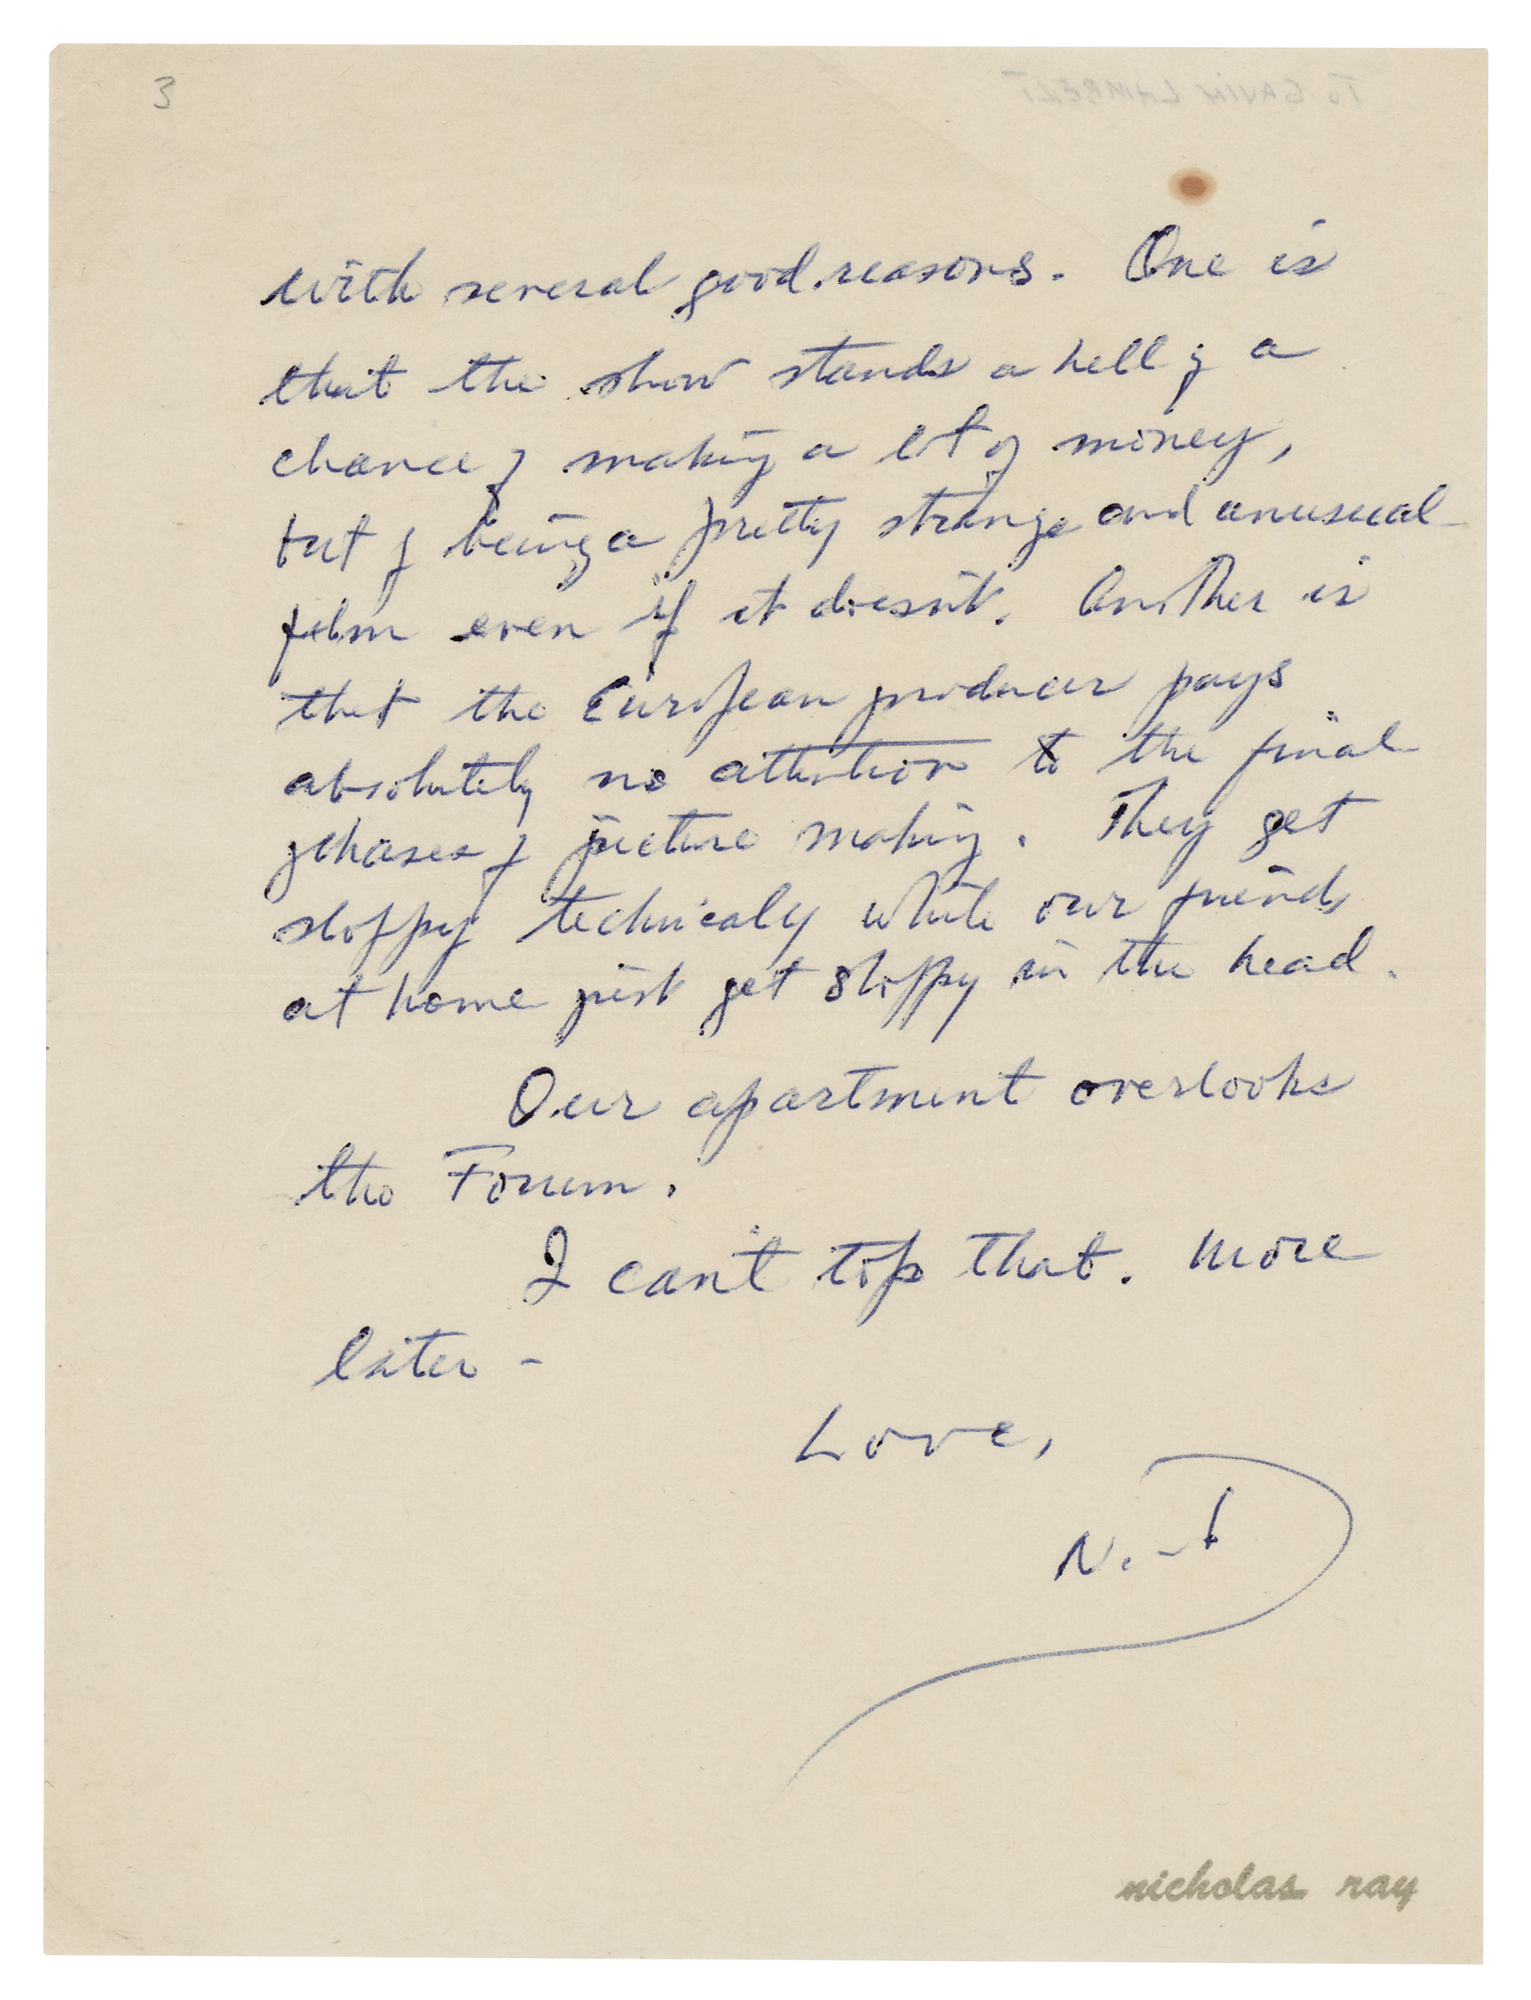 3
TO GAVIN LAMBERT
with several good reasons. One is
that the show stands a hell of a
chance of making a lot of money,
but of being a pretty strange and unusual
film even if it doesn't. Another is
that the European producer pays
absolutely no attention to the final
phases of picture making. They get
sloppy technicaly while our friends
at home just get sloppy in the head.
Our apartment overlooks
the Forum.
I can't top that. More
later -
Love,
N.
nicholas ray